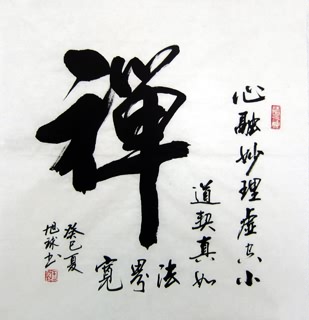 禪
心融妙理虛空小
道契真如
法界寬
癸巳夏